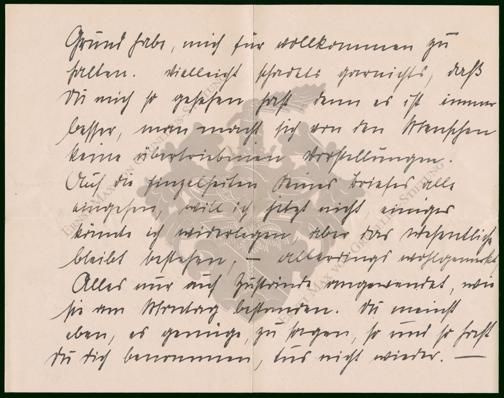 Grund habe, mich für vollkommen zu
halten. Vielleicht schadets garnichts, daß
Du mich so gesehen hast denn es ist immer
besser, man macht sich von den Menschen
keine übertriebenen Vorstellungen.
Auf die Einzelheiten Deines Briefes alle
eingehen, will ich jetzt nicht einiges
könnte ich widerlegen, aber das Wesentliche
bleibt bestehen, – allerdings wohlgemerkt
Alles nur auf Zustände angewendet, wie
sie am Montag bestanden. Du meinst
eben, es genüge, zu sagen, so und so hast
Du Dich benommen, tus nicht wieder. —